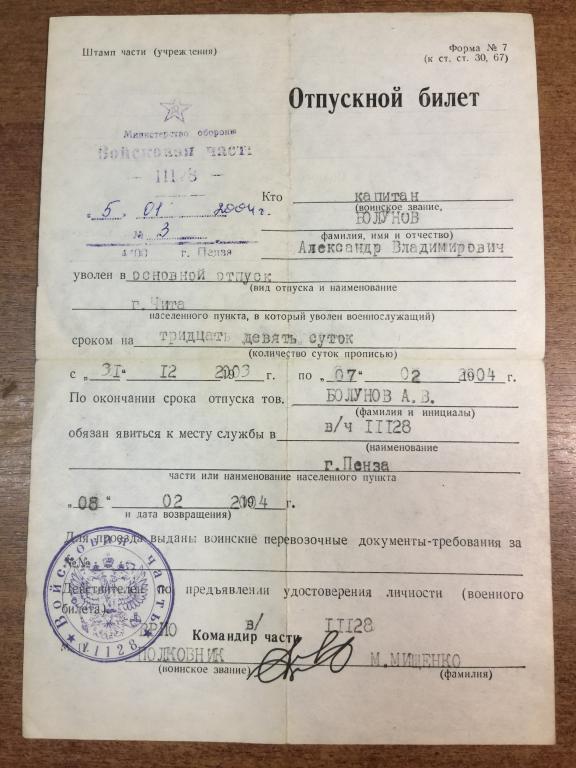 Штамп части (учреждения)
Форма № 7
(к ст. ст. 30, 67)
Отпускной билет
Министерство обороны
Войсковая часть
— III28 —
„ 5 „ 01 2004 г.
№ 3
г. Пенза
Кто капитан
(воинское звание,
БОЛУНОВ
фамилия, имя и отчество)
Александр Владимирович
уволен в основной отпуск
(вид отпуска и наименование
г.Чита
населенного пункта, в который уволен военнослужащий)
сроком на тридцать девять суток
(количество суток прописью)
с „ 31 “ 12 2003 г. по „ 07 “ 02 2004 г.
По окончании срока отпуска тов. БОЛУНОВ А.В.
(фамилия и инициалы)
обязан явиться к месту службы в в/ч III28
(наименование
г.Пенза
части или наименование населенного пункта
„ 08 “ 02 2004 г.
и дата возвращения)
Для проезда выданы воинские перевозочные документы-требования за
№№
Действителен по предъявлении удостоверения личности (военного
билета).
ВРИО Командир части в/ III28
ПОЛКОВНИК М.МИЩЕНКО
(воинское звание) (фамилия)
Войсковая часть
11128